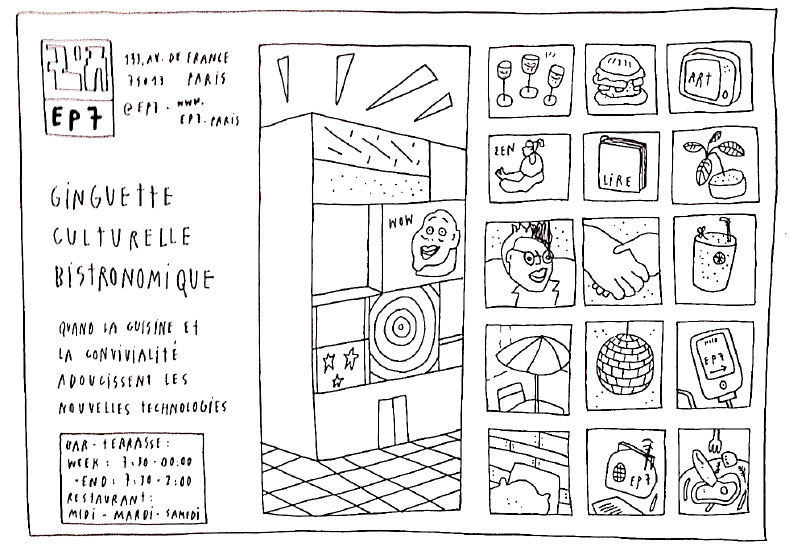 EP7
133, AV. DE FRANCE
75013 PARIS
@EP7 - WWW.
EP7.PARIS
GINGUETTE
CULTURELLE
BISTRONOMIQUE
QUAND LA CUISINE ET
LA CONVIVIALITÉ
ADOUCISSENT LES
NOUVELLES TECHNOLOGIES
BAR - TERRASSE :
WEEK : 7:30 - 00:00
-END : 7:30 - 2:00
RESTAURANT :
MIDI - MARDI - SAMEDI
WOW
ART
ZEN
LIRE
EP7
EP7